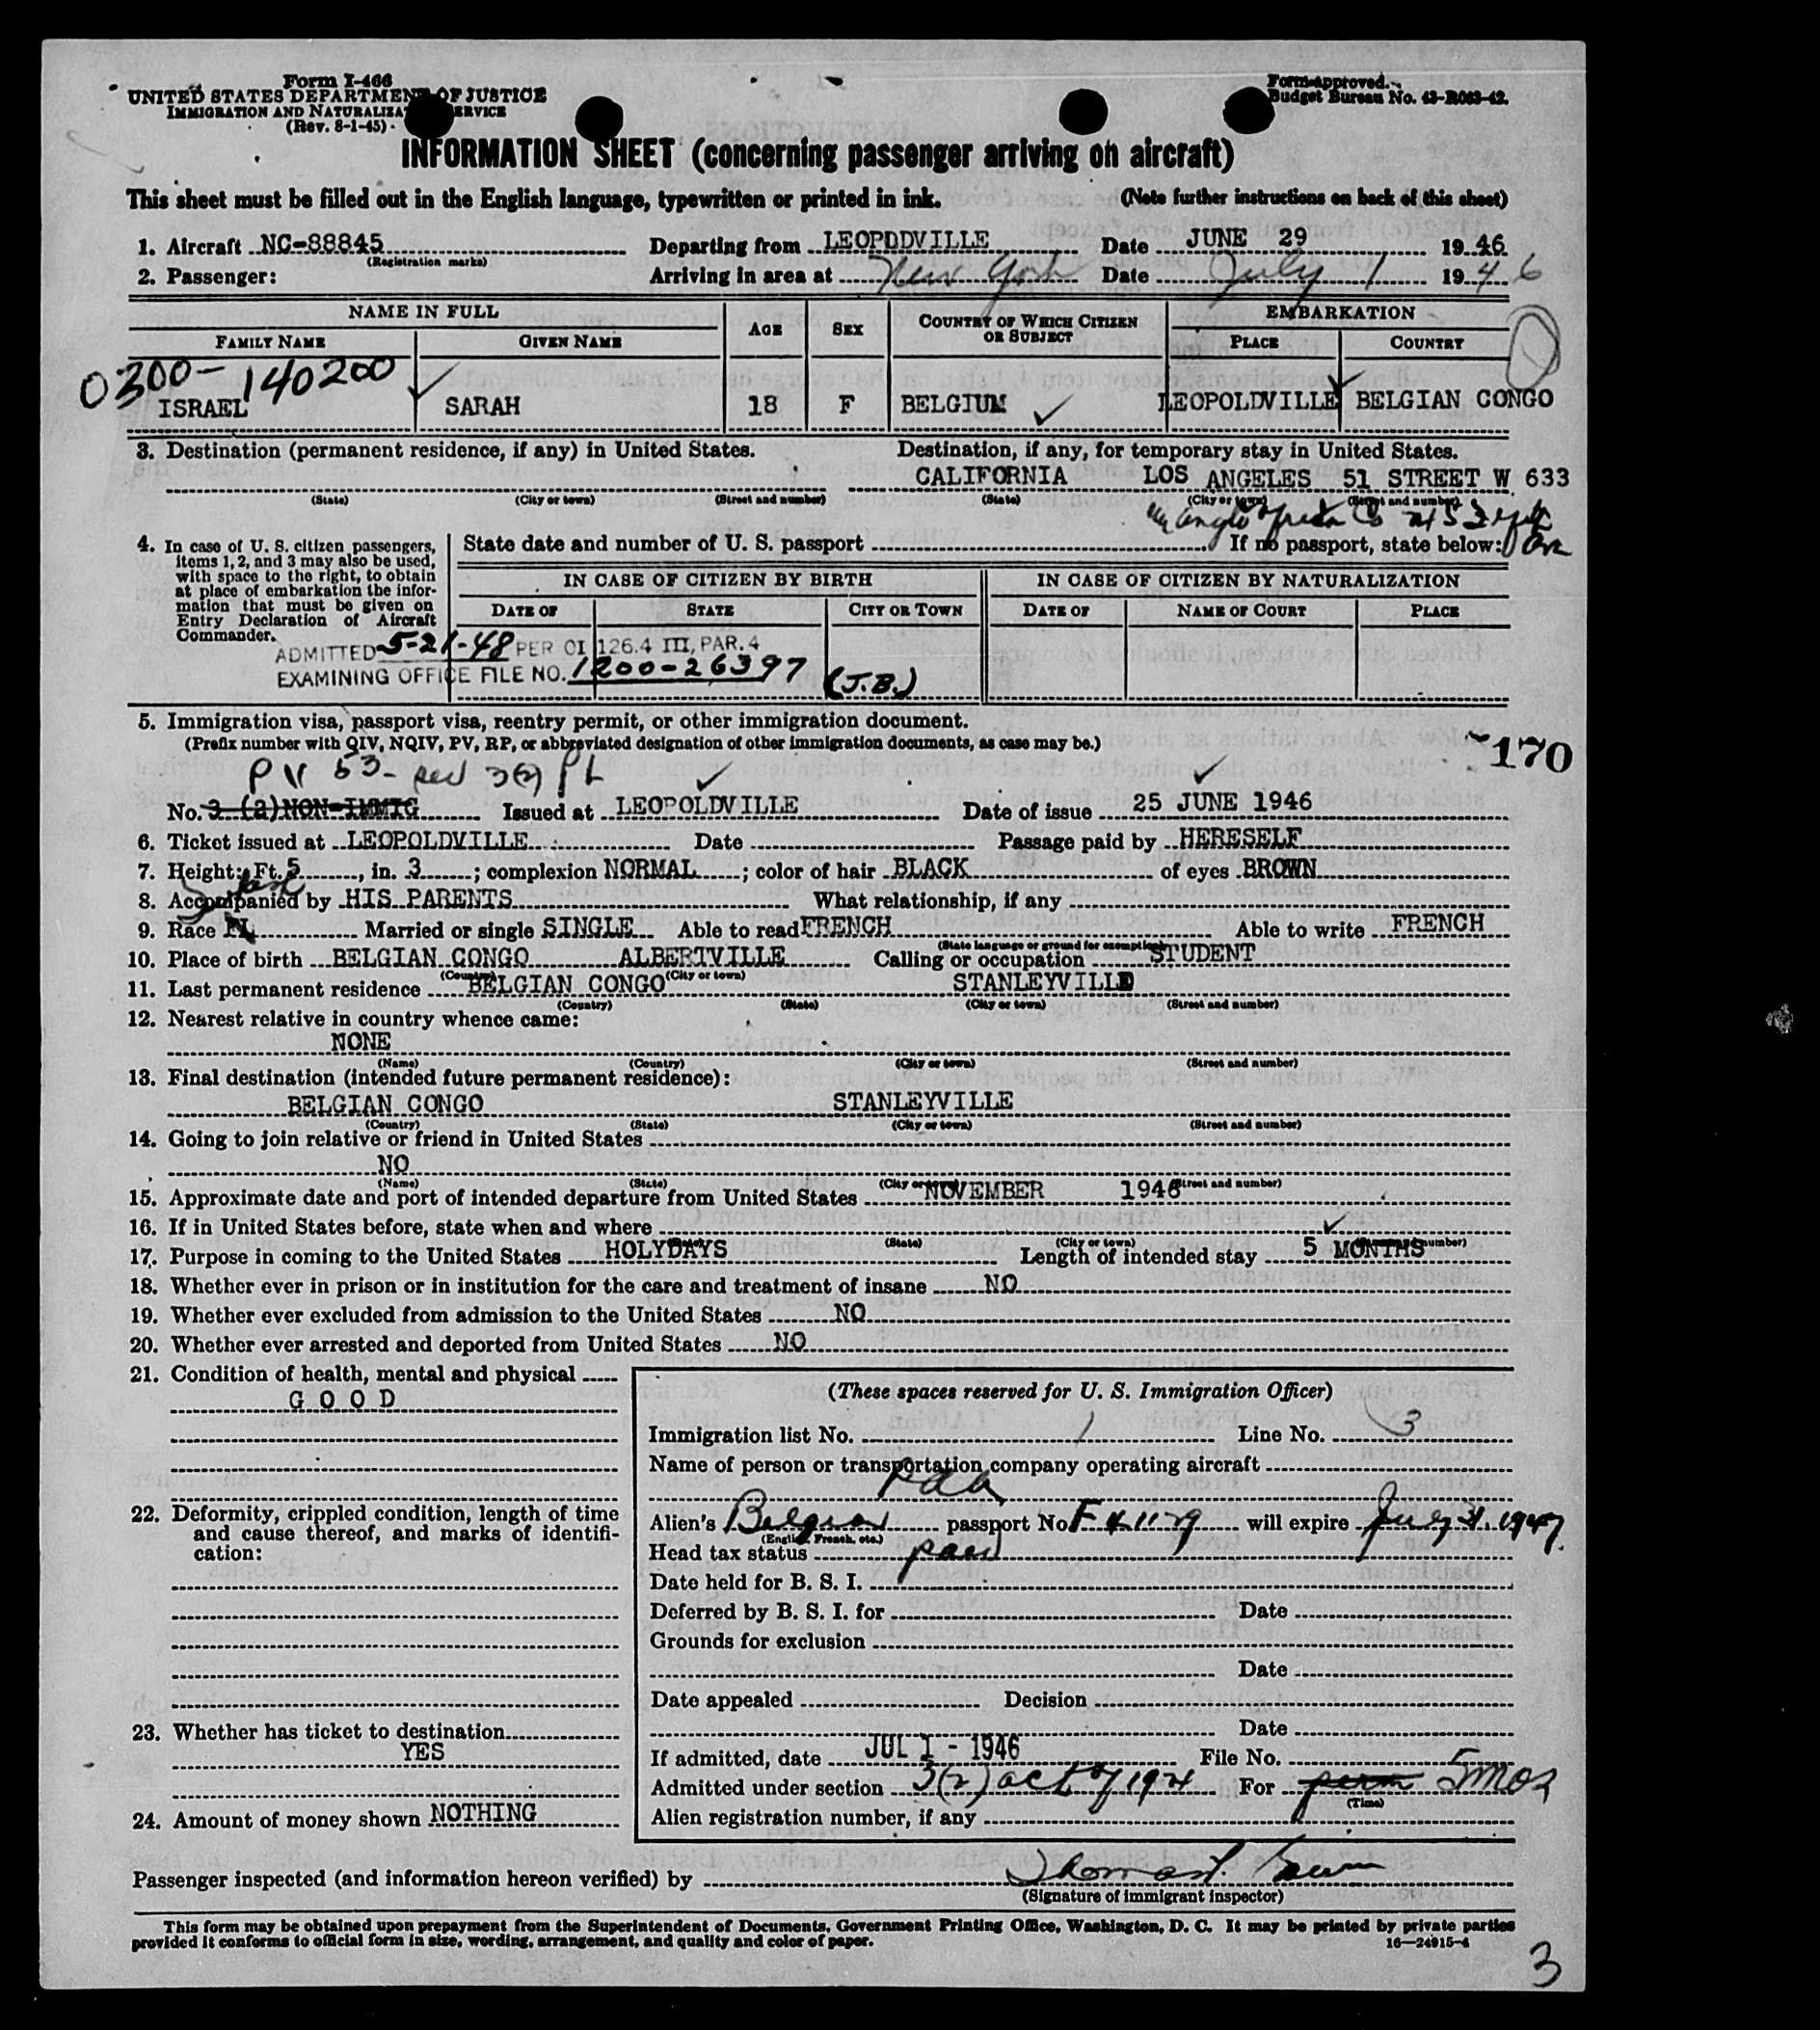 Form I-466
UNITED STATES DEPARTMENT OF JUSTICE
IMMIGRATION AND NATURALIZATION SERVICE
(Rev. 8-1-45)
Form approved.
Budget Bureau No. 43-R063-42.
INFORMATION SHEET (concerning passenger arriving on aircraft)
This sheet must be filled out in the English language, typewritten or printed in ink. (Note further instructions on back of this sheet)
1. Aircraft NC-88845 Departing from LEOPDDVILLE Date JUNE 29 1946
(Registration marks)
2. Passenger: Arriving in area at New York Date July 1 1946
NAME IN FULL AGE SEX COUNTRY OF WHICH CITIZEN OR SUBJECT EMBARKATION
FAMILY NAME GIVEN NAME PLACE COUNTRY
0300-140200
ISRAEL SARAH 18 F BELGIUM LEOPOLDVILLE BELGIAN CONGO
3. Destination (permanent residence, if any) in United States. Destination, if any, for temporary stay in United States.
CALIFORNIA LOS ANGELES 51 STREET W 633
(State) (City or town) (Street and number) (State) (City or town) (Street and number)
4. In case of U. S. citizen passengers, items 1, 2, and 3 may also be used, with space to the right, to obtain at place of embarkation the information that must be given on Entry Declaration of Aircraft Commander.
State date and number of U. S. passport If no passport, state below:
IN CASE OF CITIZEN BY BIRTH IN CASE OF CITIZEN BY NATURALIZATION
DATE OF STATE CITY OR TOWN DATE OF NAME OF COURT PLACE
ADMITTED 5-21-48 PER OI 126.4 III, PAR. 4
EXAMINING OFFICE FILE NO. 1200-26397 (J.B.)
5. Immigration visa, passport visa, reentry permit, or other immigration document.
(Prefix number with QIV, NQIV, PV, RP, or abbreviated designation of other immigration documents, as case may be.)
170
PV 53- 3(2) PL
No. 3 (2) NON-IMMIG Issued at LEOPOLDVILLE Date of issue 25 JUNE 1946
6. Ticket issued at LEOPOLDVILLE Date Passage paid by HERESELF
7. Height: Ft. 5, in. 3; complexion NORMAL; color of hair BLACK of eyes BROWN
8. Accompanied by HIS PARENTS What relationship, if any
9. Race Married or single SINGLE Able to read FRENCH Able to write FRENCH
(State language or ground for exemption)
10. Place of birth BELGIAN CONGO ALBERTVILLE Calling or occupation STUDENT
(Country) (City or town)
11. Last permanent residence BELGIAN CONGO STANLEYVILLE
(Country) (State) (City or town) (Street and number)
12. Nearest relative in country whence came:
NONE
(Name) (Country) (City or town) (Street and number)
13. Final destination (intended future permanent residence):
BELGIAN CONGO STANLEYVILLE
(Country) (State) (City or town) (Street and number)
14. Going to join relative or friend in United States
NO
(Name) (State) (City or town) (Street and number)
15. Approximate date and port of intended departure from United States NOVEMBER 1946
16. If in United States before, state when and where
(State) (City or town) (Street and number)
17. Purpose in coming to the United States HOLYDAYS Length of intended stay 5 MONTHS
18. Whether ever in prison or in institution for the care and treatment of insane NO
19. Whether ever excluded from admission to the United States NO
20. Whether ever arrested and deported from United States NO
21. Condition of health, mental and physical
G O O D
22. Deformity, crippled condition, length of time and cause thereof, and marks of identification:
23. Whether has ticket to destination
YES
24. Amount of money shown NOTHING
(These spaces reserved for U. S. Immigration Officer)
Immigration list No. 1 Line No. 3
Name of person or transportation company operating aircraft
Paa
Alien's Belgian passport No. will expire July 1947.
(English, French, etc.)
Head tax status paid
Date held for B. S. I.
Deferred by B. S. I. for Date
Grounds for exclusion
Date
Date appealed Decision
Date
If admitted, date JUL 1 - 1946 File No.
Admitted under section 3(2) act of 1924 For perm 5 mos
(Time)
Alien registration number, if any
Passenger inspected (and information hereon verified) by
(Signature of immigrant inspector)
This form may be obtained upon prepayment from the Superintendent of Documents, Government Printing Office, Washington, D. C. It may be printed by private parties
provided it conforms to official form in size, wording, arrangement, and quality and color of paper. 16—24915-4
3